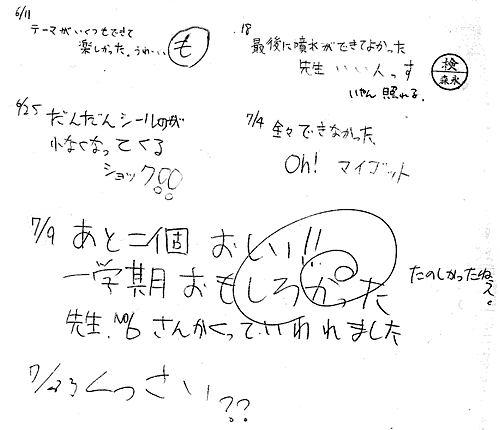 6/11
テーマがいくつもできて
楽しかった。うれ、、、
も
18
最後に噴水ができてよかった
先生 いい人っす
いやん 照れる。
検
森永
6/25 だんだんシールのが
小なくなってくる
ショック!!
7/4 全々できなかった、
Oh! マイゴット
7/9 あと二個 おしい!!
一学期おもしろかった
たのしかったねえ。
先生. No6 さんかくっていわれました
7/23 くっさい??